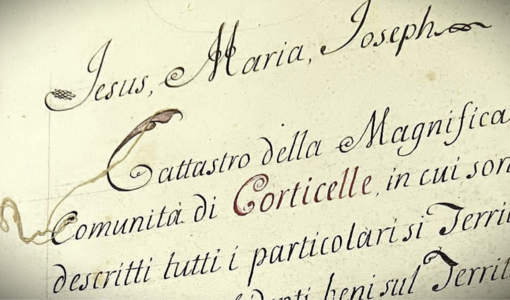 Jesus, Maria, Joseph
Cattastro della Magnifica
Comunità di Corticelle, in cui son
descritti tutti i particolari si Terri
denti beni sul Territ